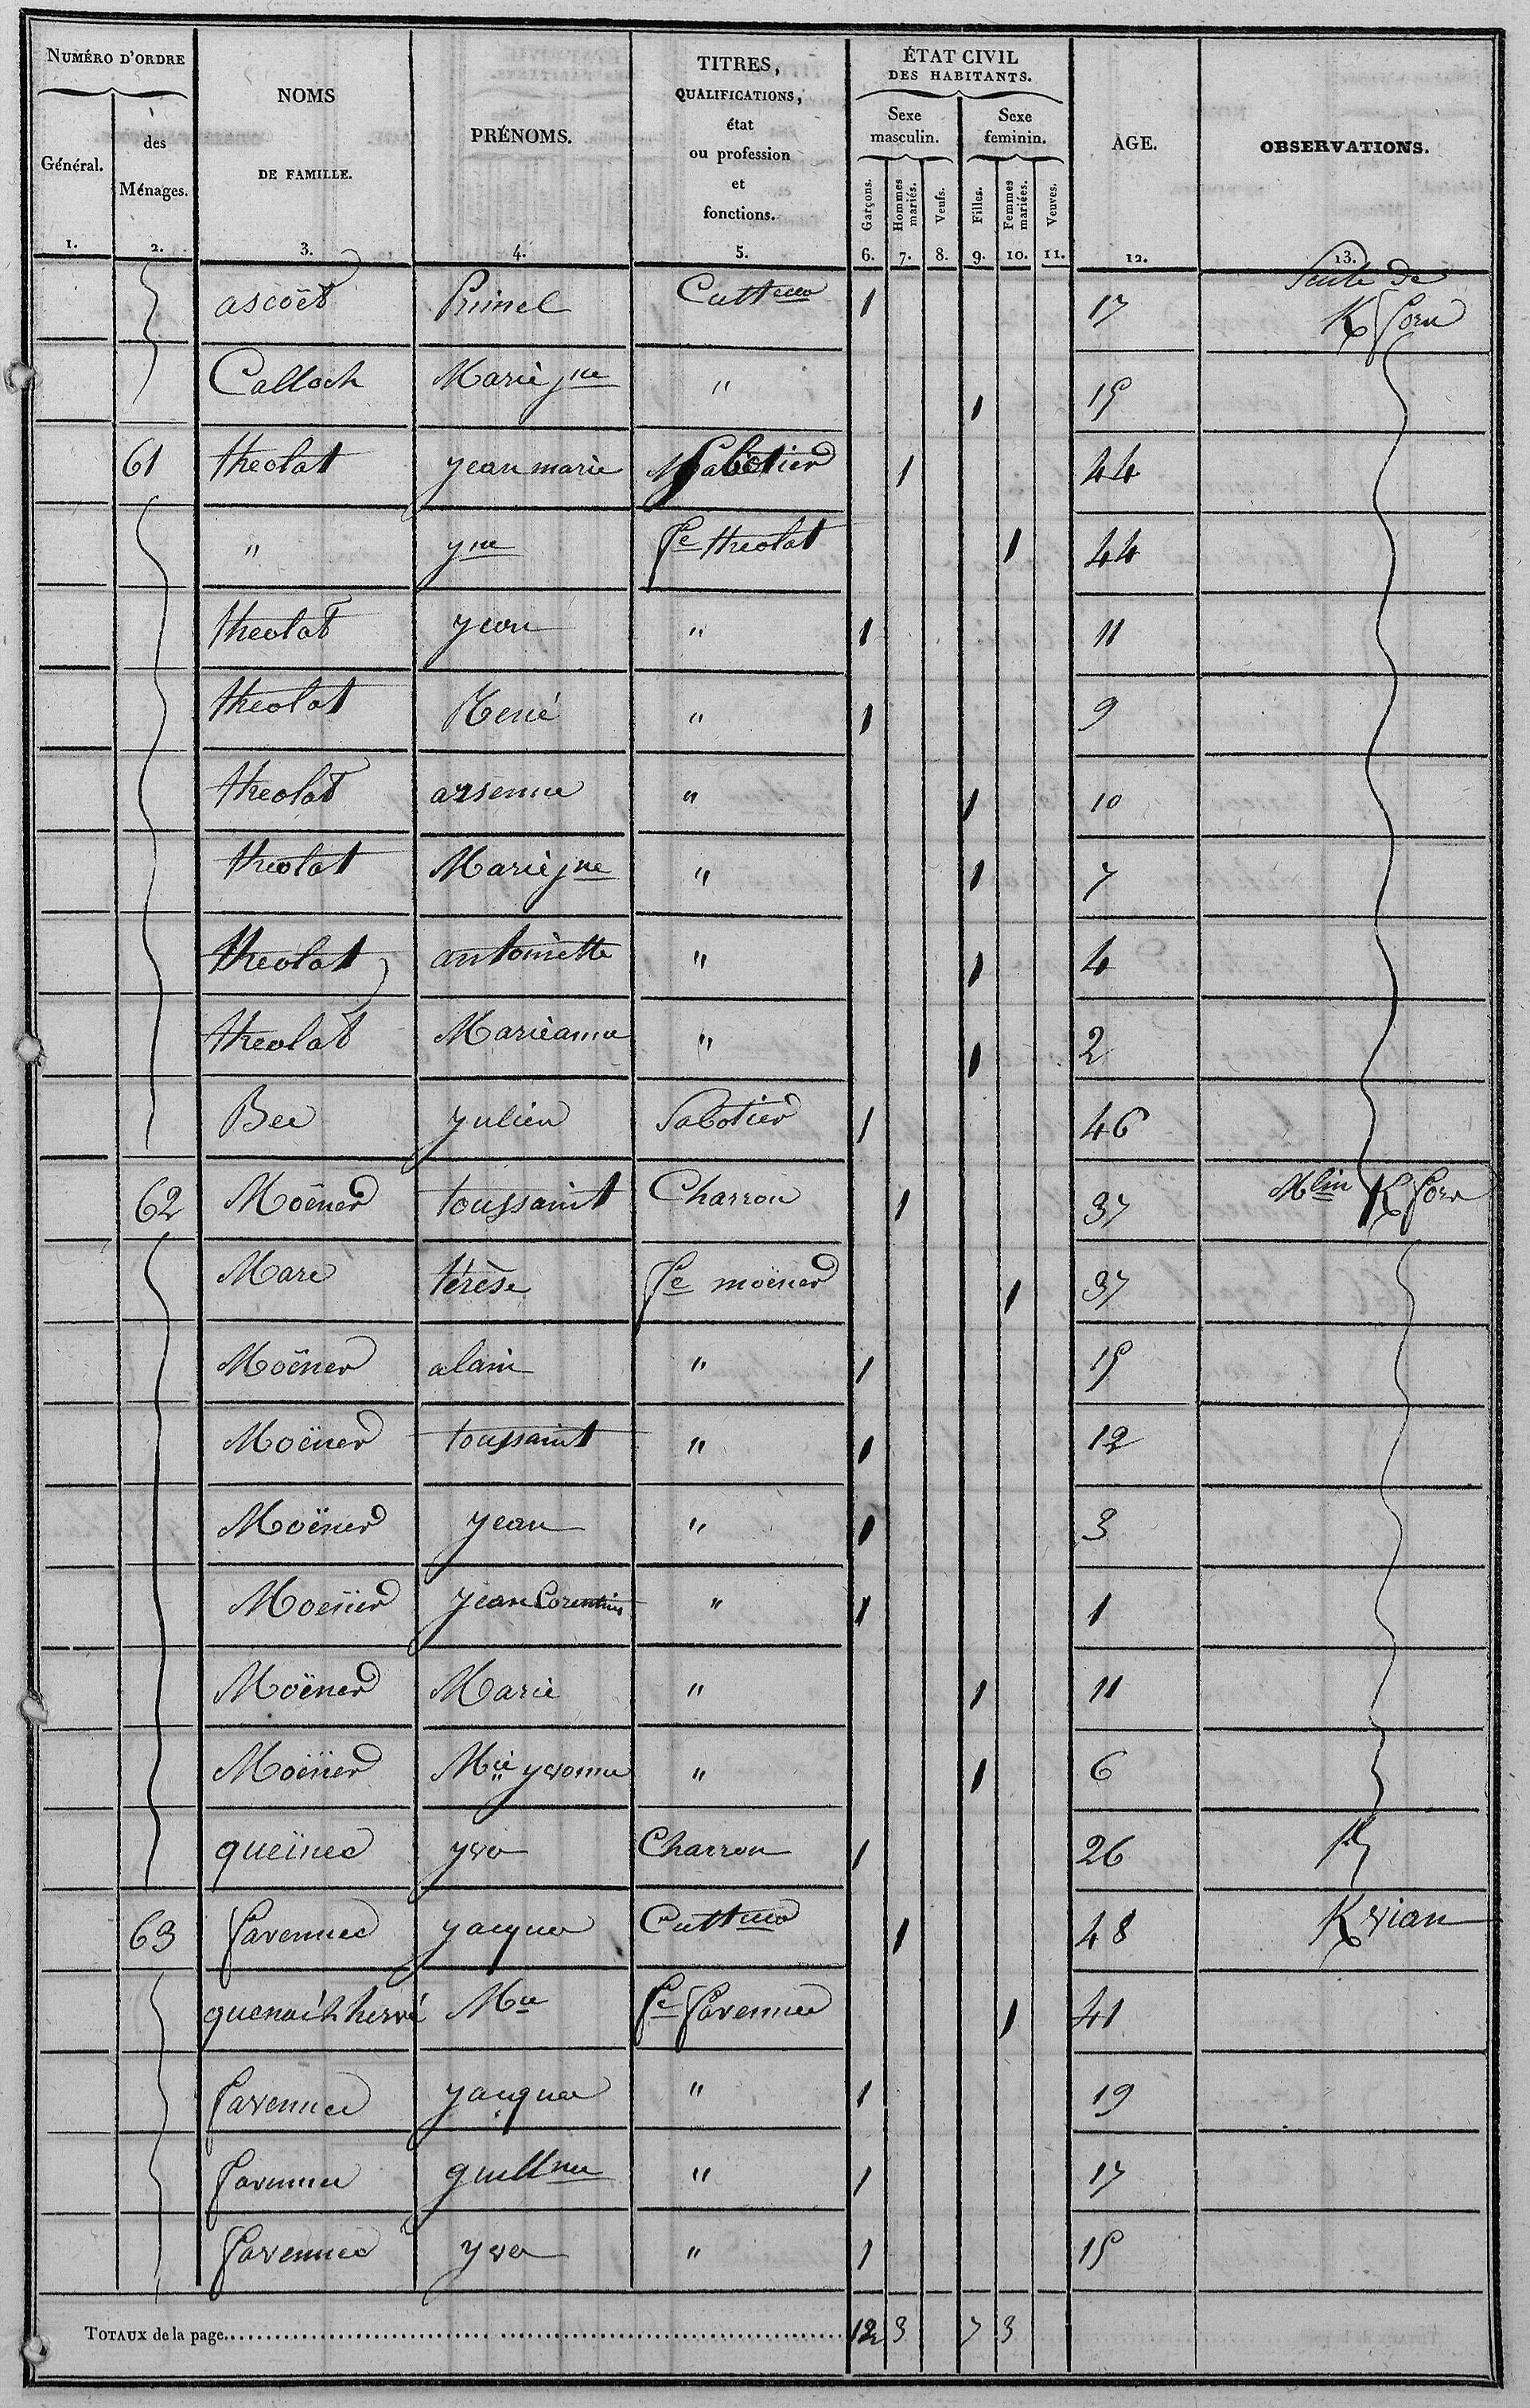 NUMÉRO D'ORDRE
Général.
1.
des Ménages.
2.
NOMS DE FAMILLE.
3.
PRÉNOMS.
4.
TITRES, QUALIFICATIONS, état ou profession et fonctions.
5.
ÉTAT CIVIL DES HABITANTS.
Sexe masculin.
Sexe feminin.
Garçons. 6.
Hommes mariés. 7.
Veufs. 8.
Filles. 9.
Femmes mariées. 10.
Veuves. 11.
AGE.
12.
OBSERVATIONS.
13.
ascoët Primel Cultteur 1 17 Suite de K forn
Calloch Marie jne " 1 15
61 theolat jean marie Md Sabotier 1 44
" yne fe theolat 1 44
theolat yvon " 1 11
theolat René " 1 9
theolat arsenne " 1 10
theolat Marie jne " 1 7
theolat antoinette " 1 4
theolat Marieanne " 1 2
Bec julien Sabotier 1 46
62 Moëner toussaint Charron 1 37 Mlin K forn
Marc térèse fe moëner 1 37
Moëner alain " 1 15
Moëner toussaint " 1 12
Moëner jean " 1 3
Moëner jean Corentin " 1 1
Moëner Marie " 1 11
Moëner Mie yvonne " 1 6
queïnec yves Charron 1 26
63 favennec jacques Culteur 1 48 K vian
quenac'h hervé Mie fe favennec 1 41
favennec jacques " 1 19
favennec guillme " 1 17
favennec yves " 1 15
TOTAUX de la page 12 3 7 3